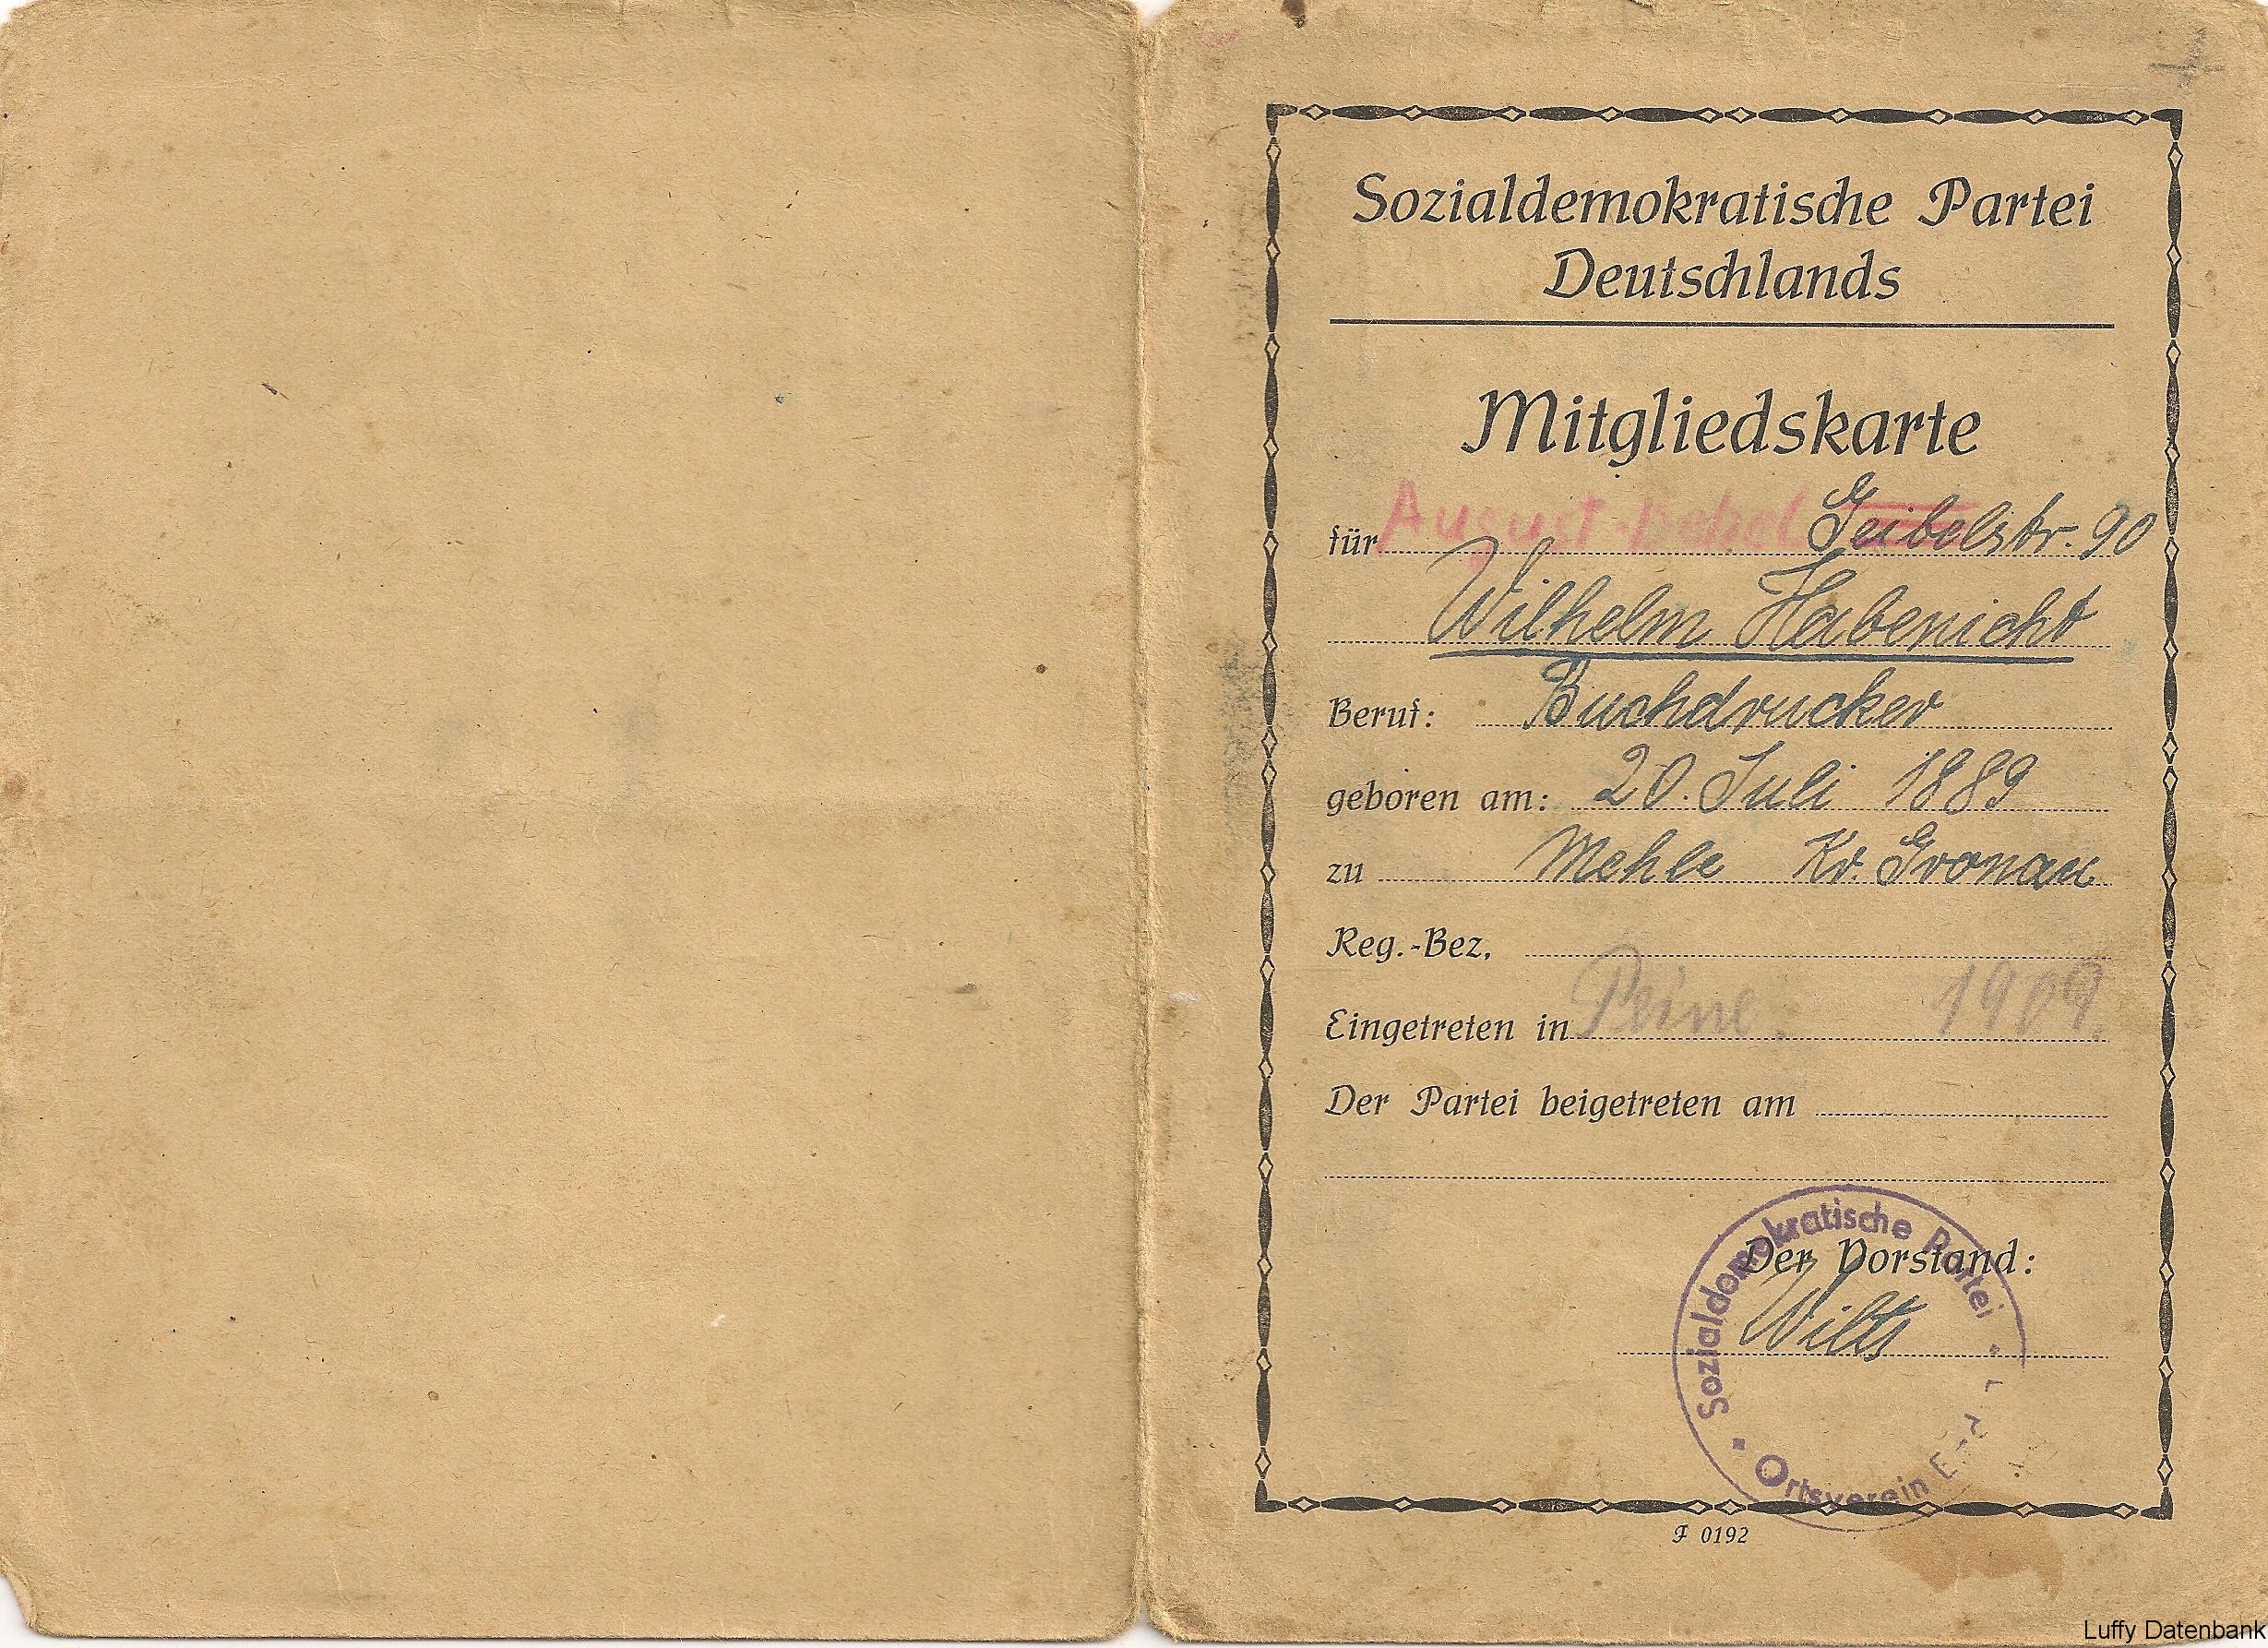 Sozialdemokratische Partei
Deutschlands
Mitgliedskarte
für August-Bebel Geibelstr. 90
Wilhelm Habenicht
Beruf: Buchdrucker
geboren am: 20. Juli 1889
zu Mehle Kr. Gronau
Reg.-Bez.
Eingetreten in Peine. 1909.
Der Partei beigetreten am
Der Vorstand:
Wilts
Sozialdemokratische Partei
Ortsverein
F 0192
Luffy Datenbank